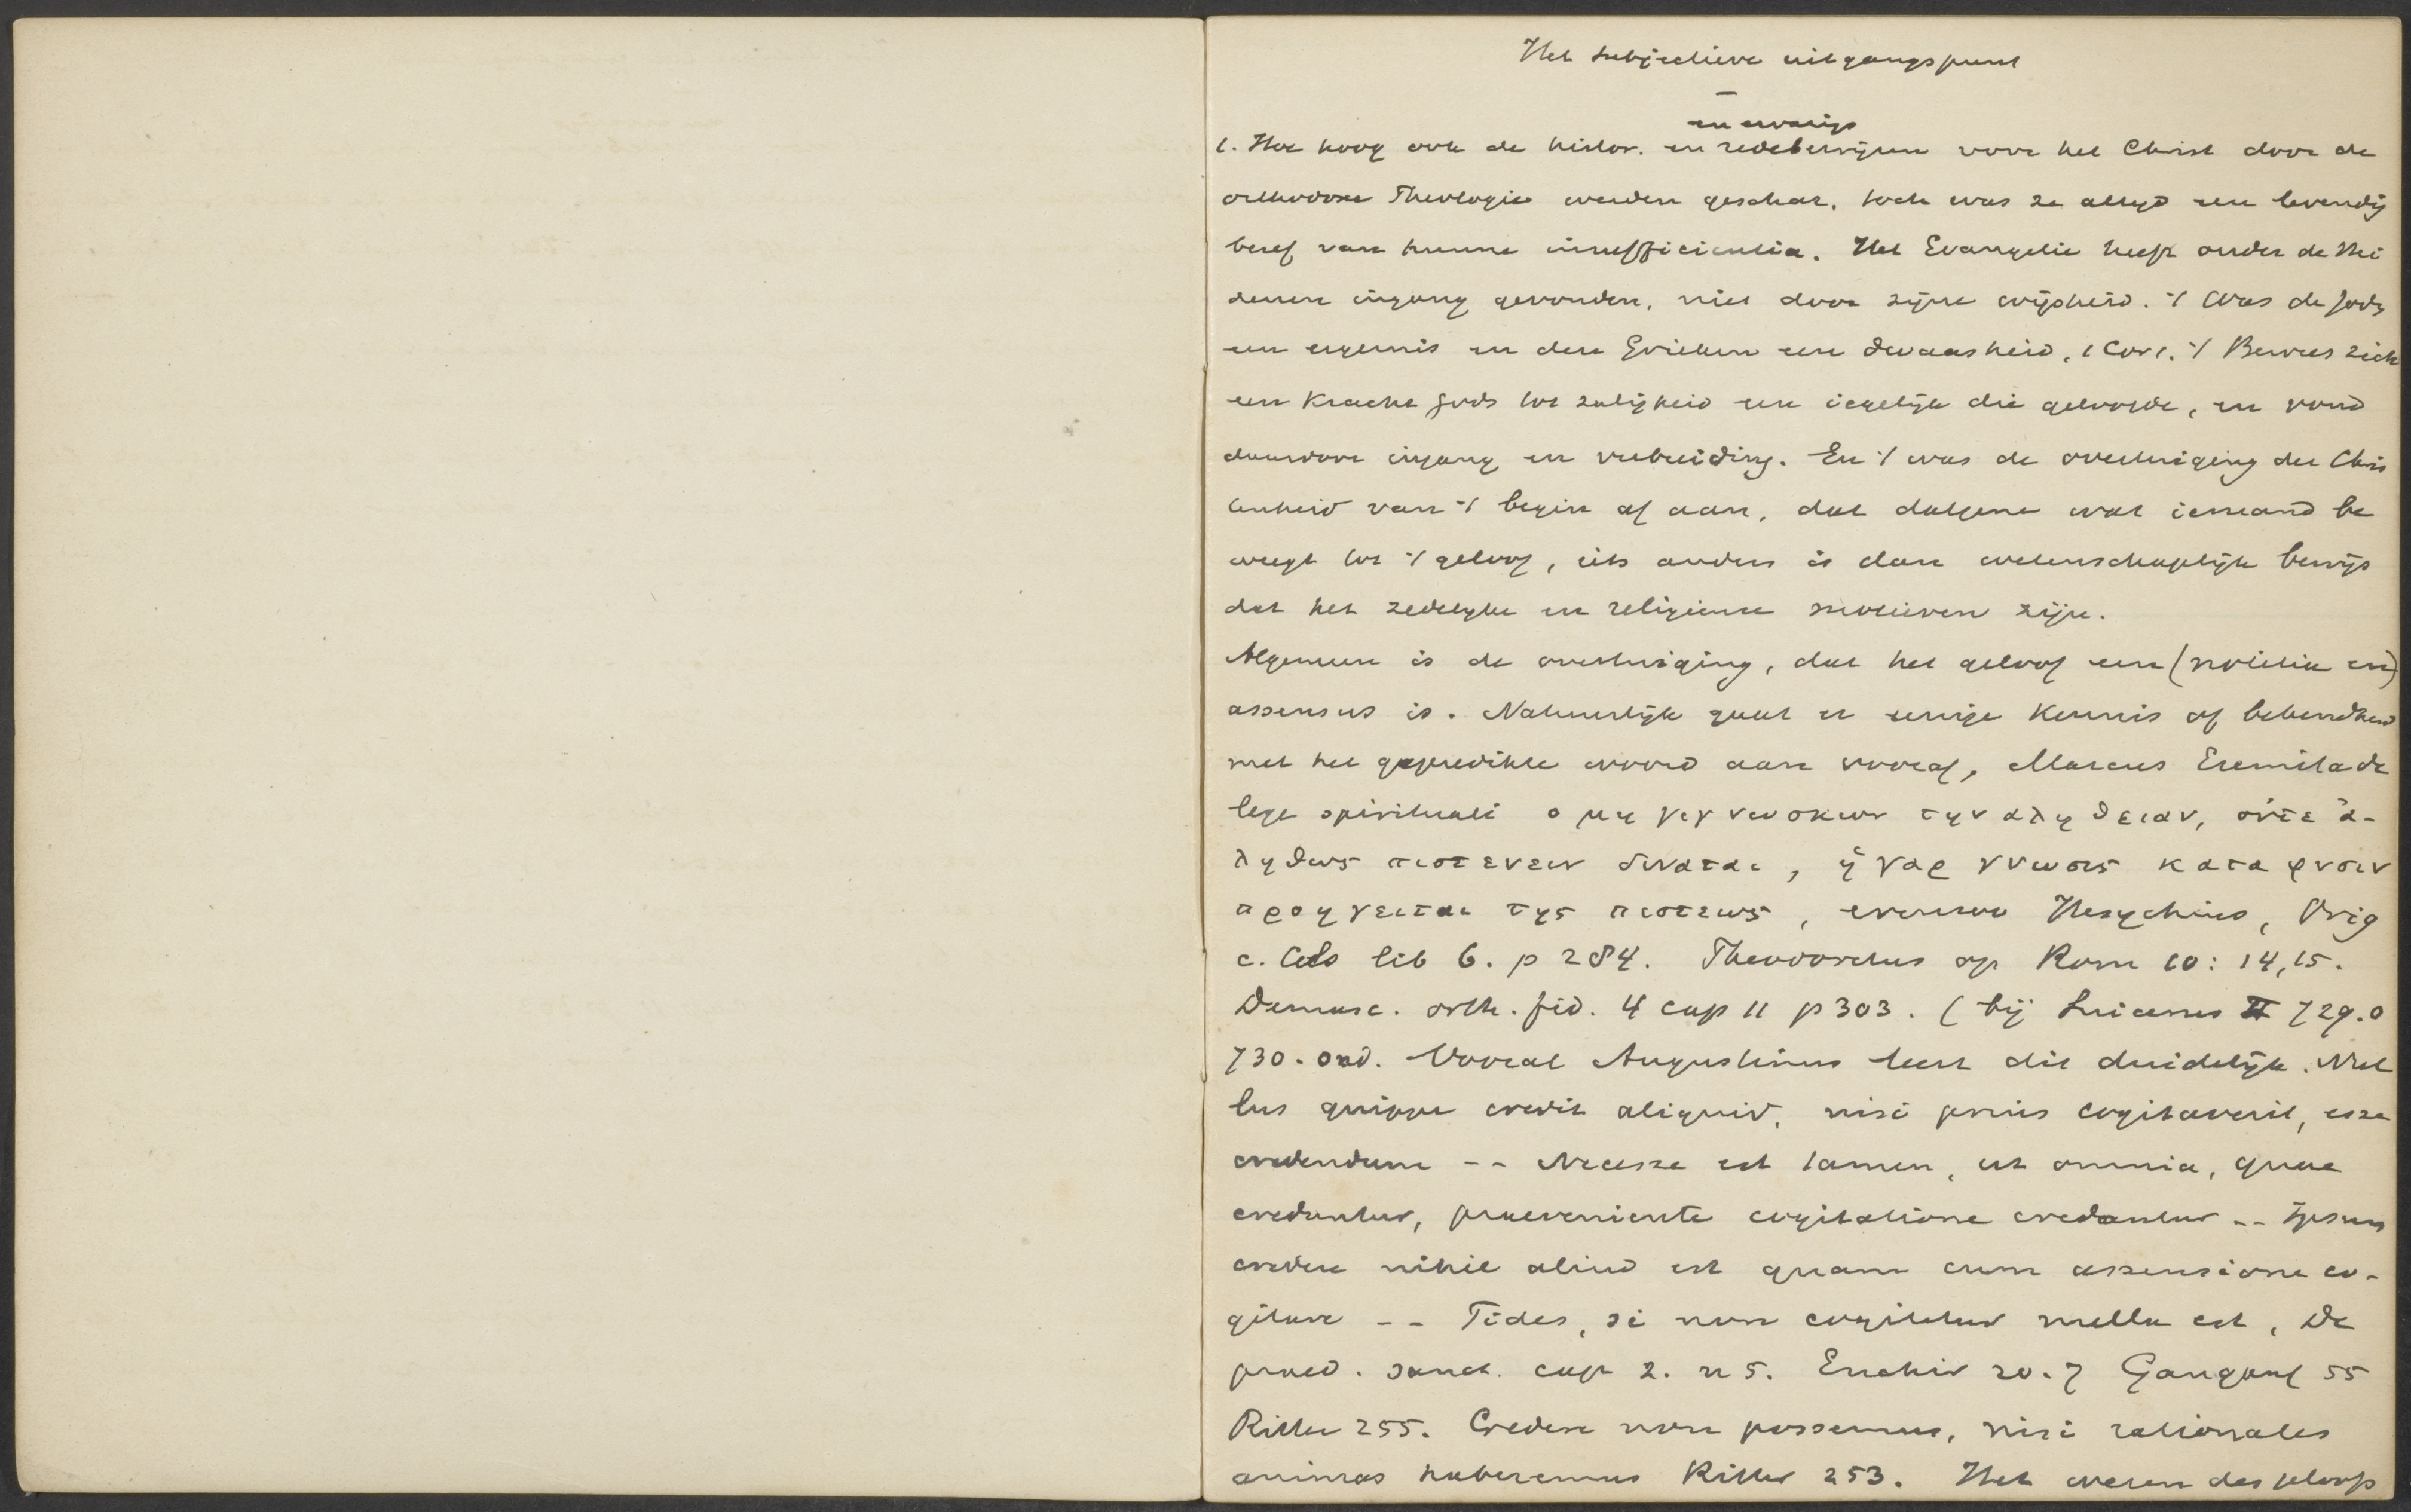 Het subjectieve uitgangspunt
en ervarings
1. Hoe hoog ook de histor. en redebewijzen voor het Christ door de
orthodoxe Theologie werden geschat, toch was ze altijd een levendig
besef van hunne insufficientia. Het Evangelie heeft onder de Hei
denen ingang gevonden, niet door zijne wijsheid. 't Was de Jods
een ergernis en den Grieken een dwaasheid, 1 Cor 1. 't Bewees zich
een kracht Gods tot zaligheid een iegelijk die geloofde, en vond
daardoor ingang en verbreiding. En 't was de overtuiging der Chris
tenheid van 't begin af aan, dat datgene wat iemand be
weegt tot 't geloof, iets anders is dan wetenschaplijk bewijs
dat het zedelijke en religieuse motieven zijn.
Algemeen is de overtuiging, dat het geloof een (notitia en)
assensus is. Natuurlijk gaat er eenige kennis of bekendheid
met het gepredikte woord aan vooraf, Marcus Eremita de
lege spirituali ο μη γιγνωσκων την αληθειαν, ουτε ἀ-
ληθως πιστευειν δυναται, ἡ γαρ γνωσις κατα φυσιν
προηγειται της πιστεως, evenzoo Hesychius, Orig
c. Cels lib 6. p 284. Theodoretus op Rom 10: 14, 15.
Damasc. orth. fid. 4 cap 11 p 303. (bij Suicerus II 729.0
730. ond. Vooral Augustinus leert dit duidelijk. Nul
lus quippe credit aliquid, nisi prius cogitaverit, esse
credendum -- Necesse est tamen, ut omnia, quae
creduntur, praeveniente cogitatione credantur -- Ipsum
credere nihil aliud est quam cum assensione co-
gitare -- Fides, si non cogitetur nulla est, De
praed. sanct. cap 2. n 5. Enchir 20. 7 Gangauf 55
Ritter 255. Credere non possemus, nisi rationales
animas haberemus Ritter 253. Het wezen des geloofs